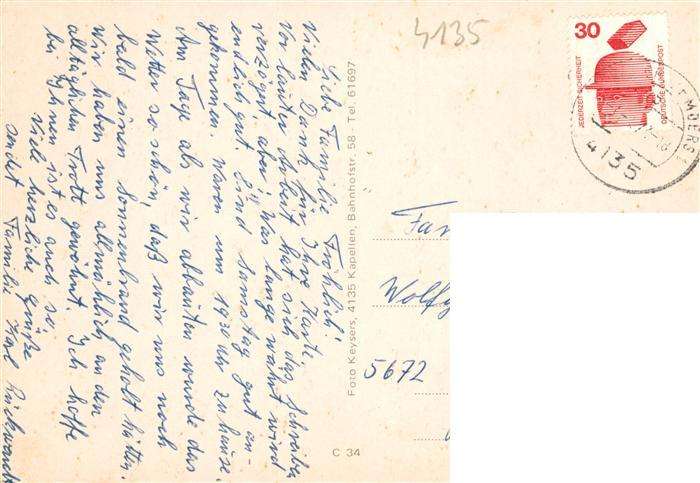 Liebe Familie Fröhlich!
Vielen Dank für Ihre Karte,
vor lauter Arbeit hat sich das Schreiben
verzögert, aber was lange währt wird
endlich gut. Sind Samstag gut an-
gekommen. Waren um 19.30 Uhr zu hause.
Am Tage als wir abbauten wurde das
Wetter so schön, daß wir uns noch
bald einen Sonnenbrand geholt hätten.
Wir haben uns allmählich an den
alltäglichen Trott gewöhnt. Ich hoffe
bei Ihnen ist es auch so.
Viele herzliche Grüße
sendet Familie Karl
Foto Keysers, 4135 Kapellen, Bahnhofstr. 58 - Tel. 61697
C 34
4135
30
JEDERZEIT SICHERHEIT
DEUTSCHE BUNDESPOST
4135
Fam
Wolfg
5672